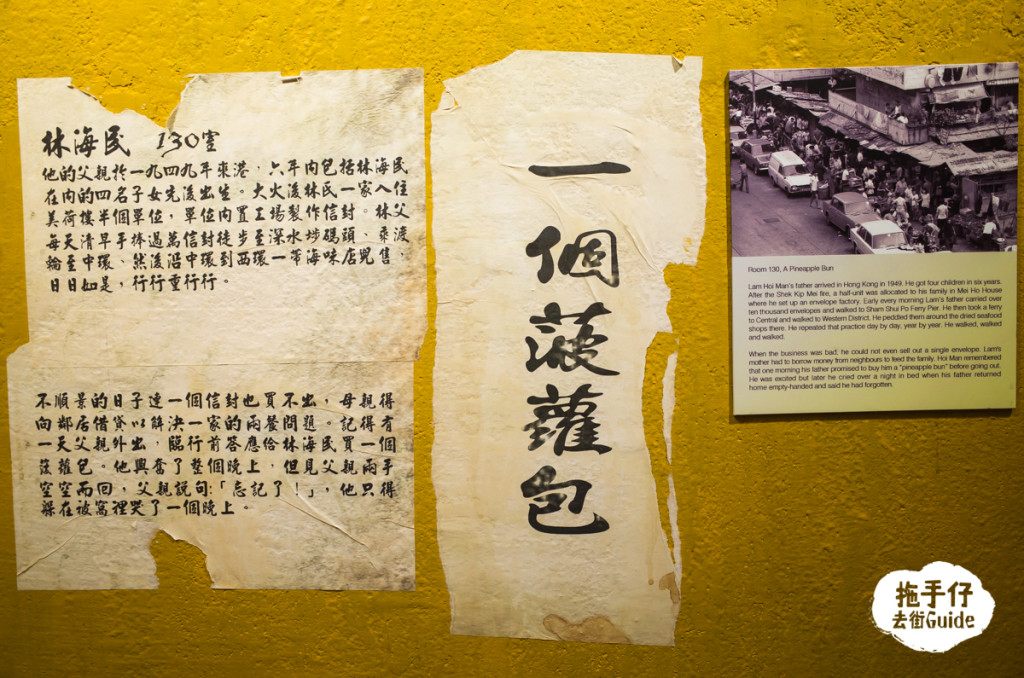 林海民 130室
他的父親於一九四九年來港，六年內包括林海民
在內的四名子女先後出生。大火後林氏一家入住
美荷樓半個單位，單位內置工場製作信封。林父
每天清早手捧過萬信封徒步至深水埗碼頭、乘渡
輪至中環、然後沿中環到西環一帶海味店兜售，
日日如是，行行重行行。
不順景的日子連一個信封也賣不出，母親得
向鄰居借貸以解決一家的兩餐問題。記得有
一天父親外出，臨行前答應給林海民買一個
菠蘿包。他興奮了整個晚上，但見父親兩手
空空而回，父親說句:「忘記了!」，他只得
躲在被窩裡哭了一個晚上。
一個菠蘿包
Room 130, A Pineapple Bun
Lam Hoi Man's father arrived in Hong Kong in 1949. He got four children in six years.
After the Shek Kip Mei fire, a half-unit was allocated to his family in Mei Ho House
where he set up an envelope factory. Early every morning Lam's father carried over
ten thousand envelopes and walked to Sham Shui Po Ferry Pier. He then took a ferry
to Central and walked to Western District. He peddled them around the dried seafood
shops there. He repeated that practice day by day, year by year. He walked, walked
and walked.
When the business was bad, he could not even sell out a single envelope. Lam's
mother had to borrow money from neighbours to feed the family. Hoi Man remembered
that one morning his father promised to buy him a "pineapple bun" before going out.
He was excited but later he cried over a night in bed when his father returned
home empty-handed and said he had forgotten.
拖手仔
去街Guide